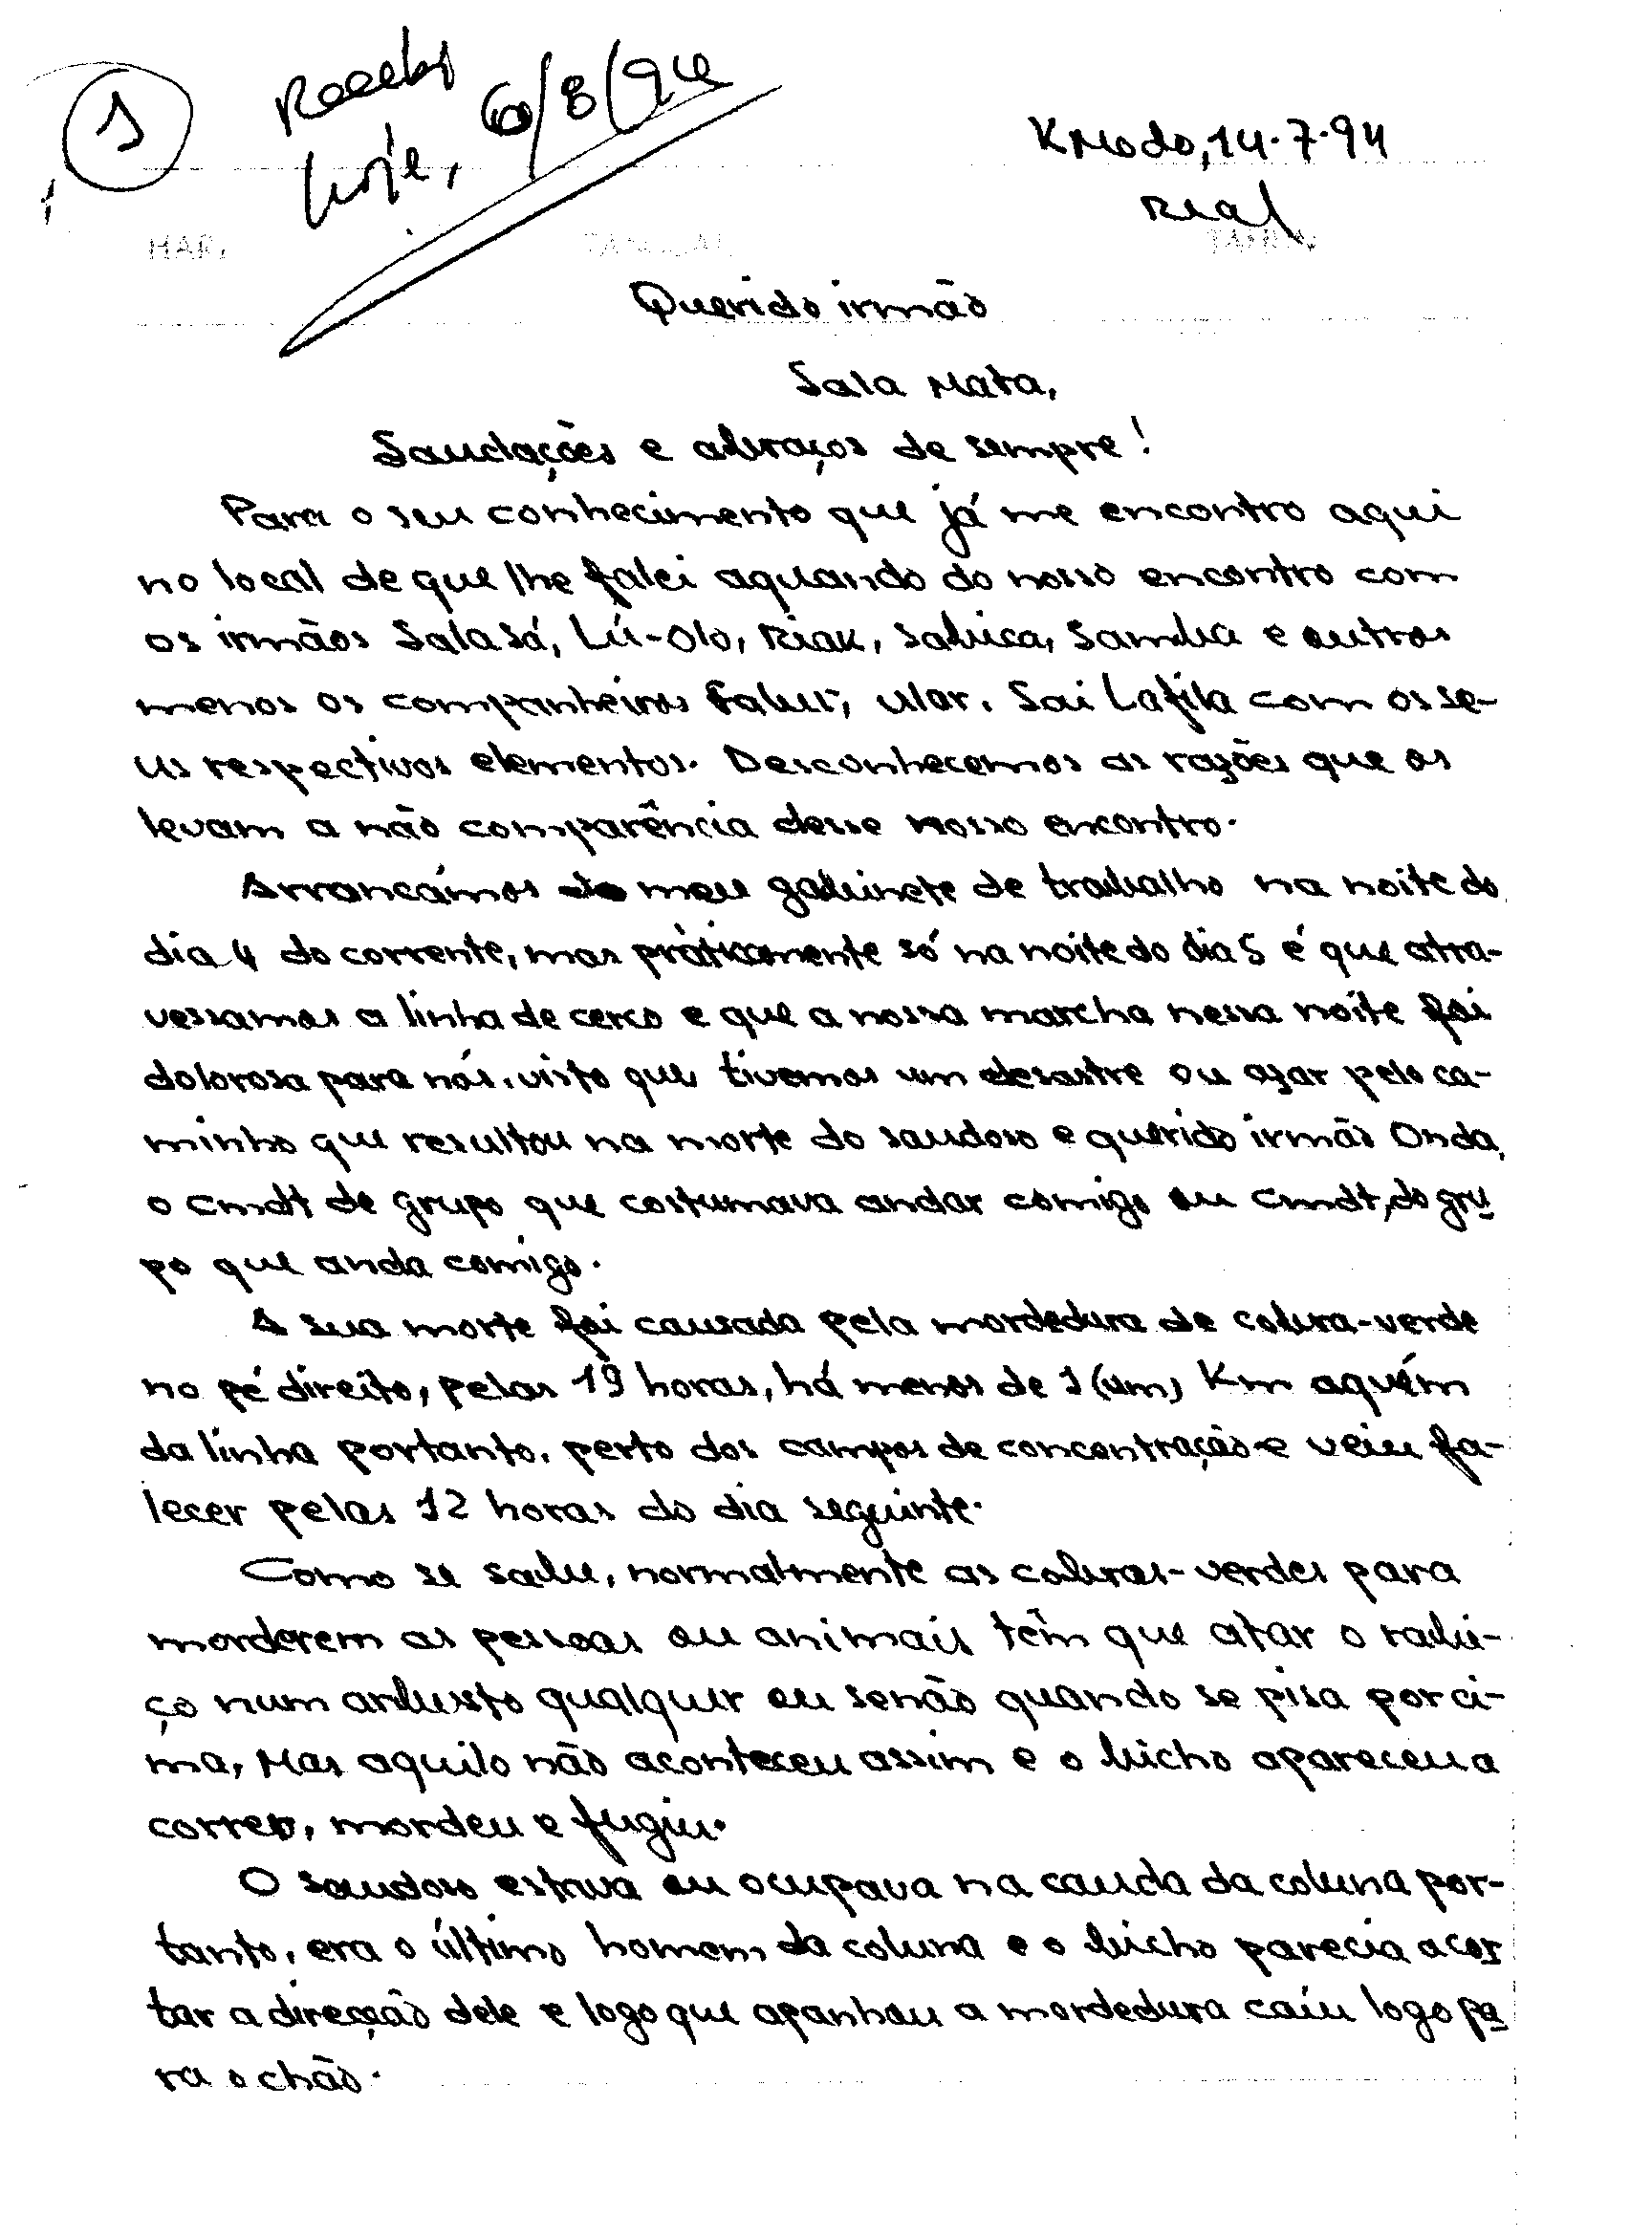 1
Recebi
hoje, 6/8/94
Kmodo, 14.7.94
Real
HARI
TANGGAL
Querido irmão
Sala Mata,
Saudações e abraços de sempre!
Para o seu conhecimento que já me encontro aqui
no local de que lhe falei aquando do nosso encontro com
os irmãos Sala Sá, Lú-Olo, Riak, Sabica, Samba e outros
menos os companheiros Falur, Ular, Sai Lafila com os se-
us respectivos elementos. Desconhecemos as razões que os
levam a não comparência desse nosso encontro.
Arrancámos do meu gabinete de trabalho na noite do
dia 4 do corrente, mas pràticamente só na noite do dia 5 é que atra-
vessamos a linha de cerco e que a nossa marcha nessa noite foi
dolorosa para nós, visto que tivemos um desastre ou azar pelo ca-
minho que resultou na morte do saudoso e querido irmão Onda,
o Cmdt de grupo que costumava andar comigo ou Cmdt, do gru
po que anda comigo.
A sua morte foi causada pela mordedura de cobra-verde
no pé direito, pelas 19 horas, há menos de 1 (um) Km aquém
da linha portanto, perto dos campos de concentração e veiu fa-
lecer pelas 12 horas do dia seguinte.
Como se sabe, normalmente as cobras-verdes para
morderem as pessoas ou animais têm que atar o rabi-
ço num arbusto qualquer ou senão quando se pisa por ci-
ma, Mas aquilo não aconteceu assim e o bicho apareceu a
correr, mordeu e fugiu.
O saudoso estava ou ocupava na cauda da coluna por-
tanto, era o último homem da coluna e o bicho parecia a cor
tar a direcção dele e logo que apanhou a mordedura caíu logo pa
ra o chão.